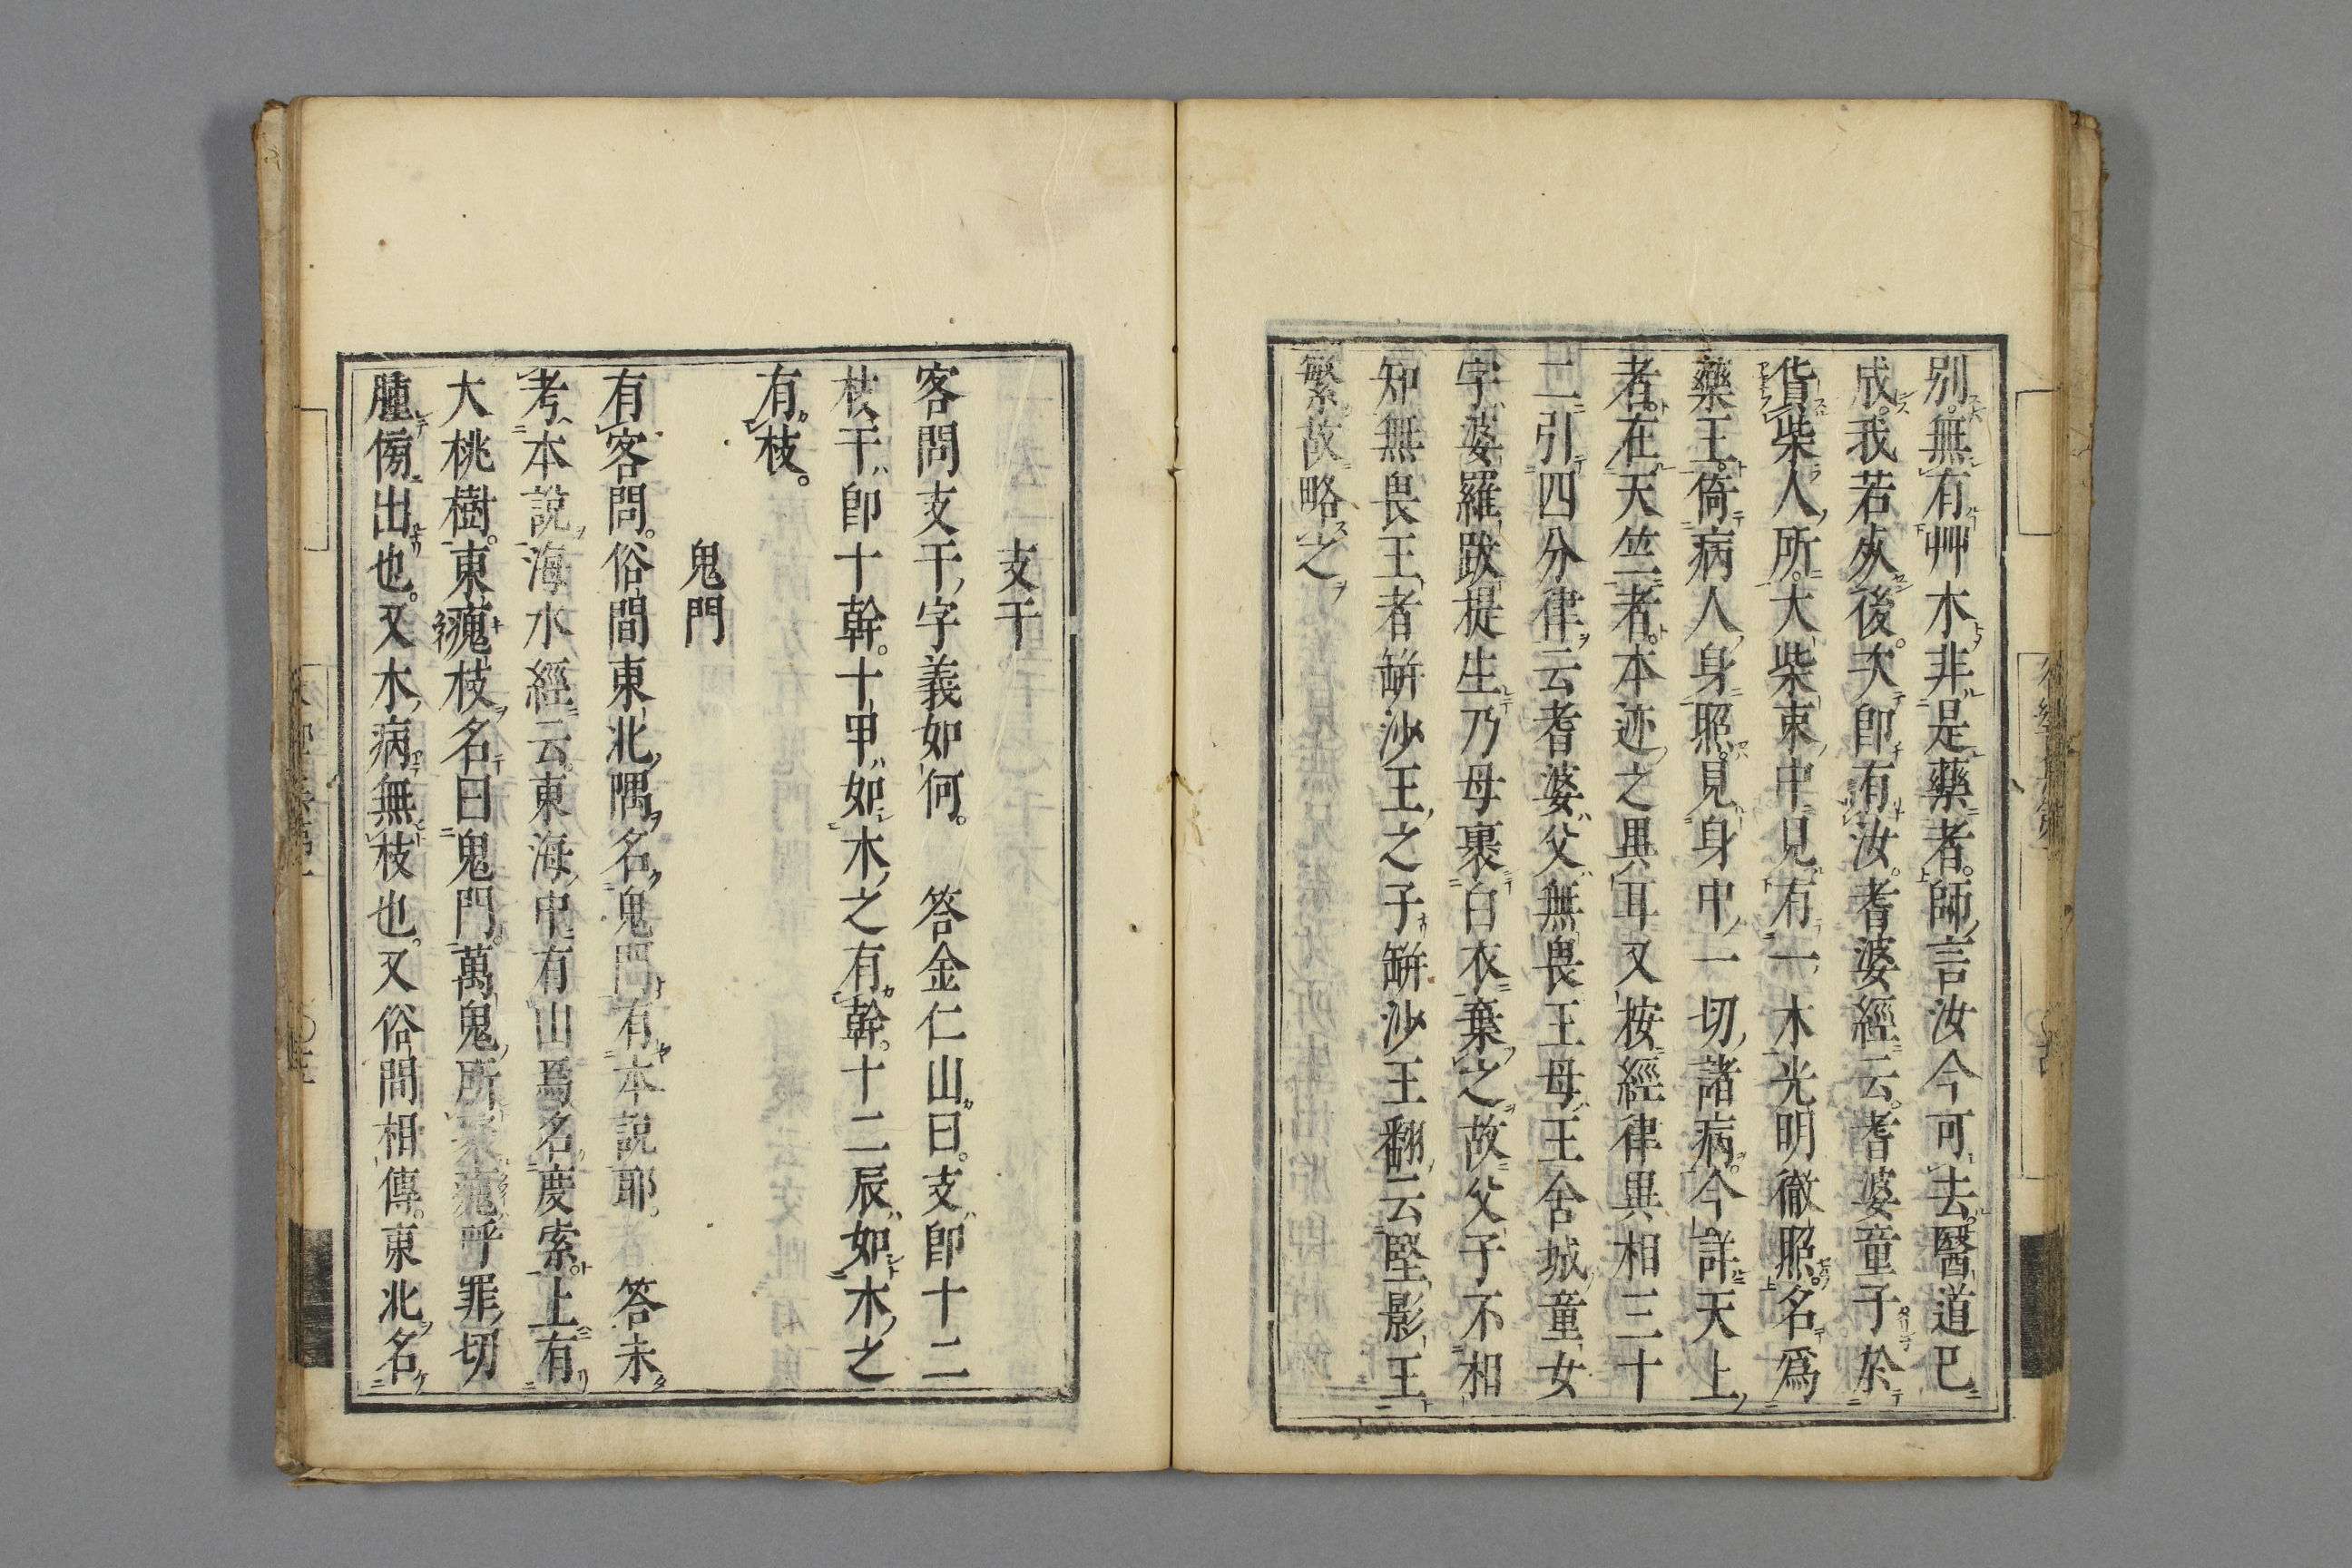 別無有艸木非是藥者師言汝今可去醫道已
成我若㱕後次即有汝耆婆經云耆婆童子於
貨柴人所大柴束中見有一木光明徹照名為
藥王倚病人身照見身中一切諸病今詳天上
者在天竺者本迹之異耳又按經律異相三十
二引四分律云耆婆父無畏王母王舍城童女
字婆羅跋提生乃母裹白衣棄之故父子不相
知無畏王者缾沙王之子缾沙王翻云堅影王
繁故略之
支干
客問支干字義如何。答金仁山曰。支即十二
枝干即十幹。十甲如木之有幹。十二辰如木之
有枝。
鬼門
有客問。俗間東北隅名鬼門有本說耶。答未
考本說海水經云東海中有山焉名度索上有
大桃樹。東瘣枝名曰鬼門萬鬼所聚瘣呼罪切
腫傍出也。又木病無枝也。又俗間相傳。東北名